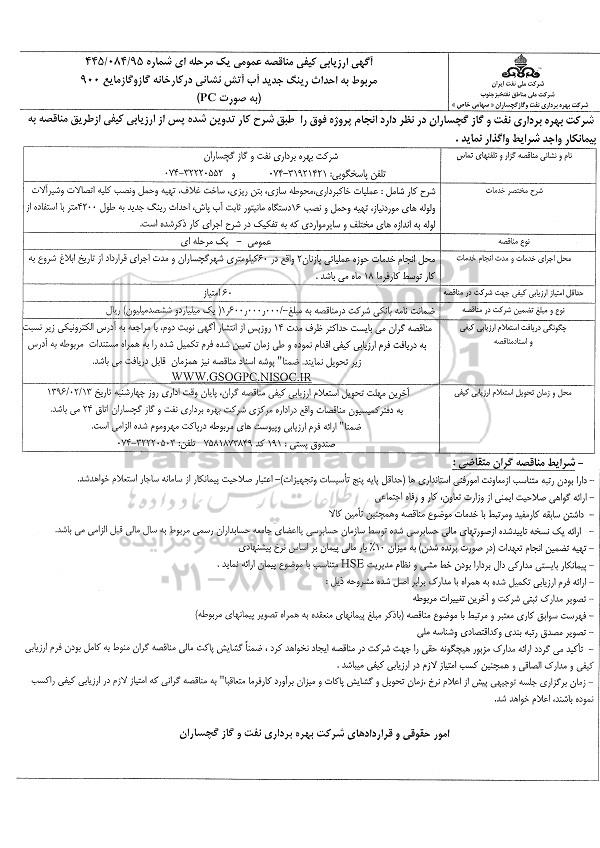 شرکت ملی نفت ایران
شرکت ملی مناطق نفتخیز جنوب
شرکت بهره برداری نفت وگاز گچساران «سهامی خاص»
آگهی ارزیابی کیفی مناقصه عمومی یک مرحله ای شماره ۴۴۵/۰۸۴/۹۵
مربوط به احداث رینگ جدید آب آتش نشانی درکارخانه گازوگازمایع ۹۰۰
(به صورت PC)
شرکت بهره برداری نفت و گاز گچساران در نظر دارد انجام پروژه فوق را طبق شرح کار تدوین شده پس از ارزیابی کیفی ازطریق مناقصه به
پیمانکار واجد شرایط واگذار نماید .
نام و نشانی مناقصه گزار و تلفنهای تماس
شرکت بهره برداری نفت و گاز گچساران
تلفن پاسخگویی: ۳۱۹۲۱۴۲۱-۰۷۴ و ۳۲۲۲۰۵۵۲-۰۷۴
شرح مختصر خدمات
شرح کار شامل : عملیات خاکبرداری،محوطه سازی، بتن ریزی، ساخت غلاف، تهیه وحمل ونصب کلیه اتصالات وشیرآلات
ولوله های موردنیاز، تهیه وحمل و نصب ۱۶دستگاه مانیتور ثابت آب پاش، احداث رینگ جدید به طول ۴۲۰۰متر با استفاده از
لوله به اندازه های مختلف و سایرمواردی که به تفکیک در شرح اجرای کار ذکرشده است.
نوع مناقصه
عمومی - یک مرحله ای
محل اجرای خدمات و مدت انجام خدمات
محل انجام خدمات حوزه عملیاتی پازنان۲ واقع در ۶۰کیلومتری شهرگچساران و مدت اجرای قرارداد از تاریخ ابلاغ شروع به
کار توسط کارفرما ۱۸ ماه می باشد .
حداقل امتیاز ارزیابی کیفی جهت شرکت در مناقصه
۶۰ امتیاز
نوع و مبلغ تضمین شرکت در مناقصه
ضمانت نامه بانکی شرکت درمناقصه به مبلغ-/۱٫۶۰۰٫۰۰۰٫۰۰۰( یک میلیاردو ششصدمیلیون) ریال
چگونگی دریافت استعلام ارزیابی کیفی
و اسنادمناقصه
مناقصه گران می بایست حداکثر ظرف مدت ۱۴ روزپس از انتشار آگهی نوبت دوم، با مراجعه به آدرس الکترونیکی زیر نسبت
به دریافت فرم ارزیابی کیفی اقدام نموده و طی زمان تعیین شده فرم تکمیل شده را به همراه مستندات مربوطه به آدرس
زیر تحویل نمایند. ضمنا" پوشه اسناد مناقصه نیز همزمان قابل دریافت می باشد.
WWW.GSOGPC.NISOC.IR
محل و زمان تحویل استعلام ارزیابی کیفی
آخرین مهلت تحویل استعلام ارزیابی کیفی مناقصه گران، پایان وقت اداری روز چهارشنبه تاریخ ۱۳۹۶/۰۲/۱۳
به دفترکمیسیون مناقصات واقع دراداره مرکزی شرکت بهره برداری نفت و گاز گچساران اتاق ۲۴ می باشد.
ضمنا" ارائه فرم ارزیابی وپیوست های مربوطه درپاکت مهروموم شده الزامی است.
صندوق پستی : ۱۹۱ کد ۷۵۸۱۸۷۳۸۴۹ تلفن: ۳۲۲۲۰۵۰۳-۰۷۴
- شرایط مناقصه گران متقاضی :
- دارا بودن رتبه متناسب ازمعاونت امورفنی استانداری ها (حداقل پایه پنج تأسیسات وتجهیزات)– اعتبار صلاحیت پیمانکار از سامانه ساجار استعلام خواهدشد.
- ارائه گواهی صلاحیت ایمنی از وزارت تعاون، کار و رفاه اجتماعی
- داشتن سابقه کارمفید ومرتبط با خدمات موضوع مناقصه وهمچنین تأمین کالا
- ارائه یک نسخه تاییدشده ازصورتهای مالی حسابرسی شده توسط سازمان حسابرسی یااعضای جامعه حسابداران رسمی مربوط به سال مالی قبل الزامی می باشد.
- تهیه تضمین انجام تعهدات (در صورت برنده شدن) به میزان ۱۰٪ بار مالی پیمان بر اساس نرخ پیشنهادی
- پیمانکار بایستی مدارکی دال بردارا بودن خط مشی و نظام مدیریت HSE متناسب با موضوع پیمان ارائه نماید .
- ارائه فرم ارزیابی تکمیل شده به همراه با مدارک برابر اصل شده مشروحه ذیل :
- تصویر مدارک ثبتی شرکت و آخرین تغییرات مربوطه
- فهرست سوابق کاری معتبر و مرتبط با موضوع مناقصه (باذکر مبلغ پیمانهای منعقده به همراه تصویر پیمانهای مربوطه)
- تصویر مصدق رتبه بندی وکداقتصادی وشناسه ملی
- تأکید می گردد ارائه مدارک مزبور هیچگونه حقی را جهت شرکت در مناقصه ایجاد نخواهد کرد ، ضمناً گشایش پاکت مالی مناقصه گران منوط به کامل بودن فرم ارزیابی
کیفی و مدارک الصاقی و همچنین کسب امتیاز لازم در ارزیابی کیفی میباشد .
- زمان برگزاری جلسه توجیهی پیش از اعلام نرخ ،زمان تحویل و گشایش پاکات و میزان برآورد کارفرما متعاقبا" به مناقصه گرانی که امتیاز لازم در ارزیابی کیفی راکسب
نموده باشند، اعلام خواهد شد.
امور حقوقی و قراردادهای شرکت بهره برداری نفت و گاز گچساران